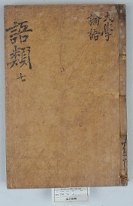 大學
論語
語類
七